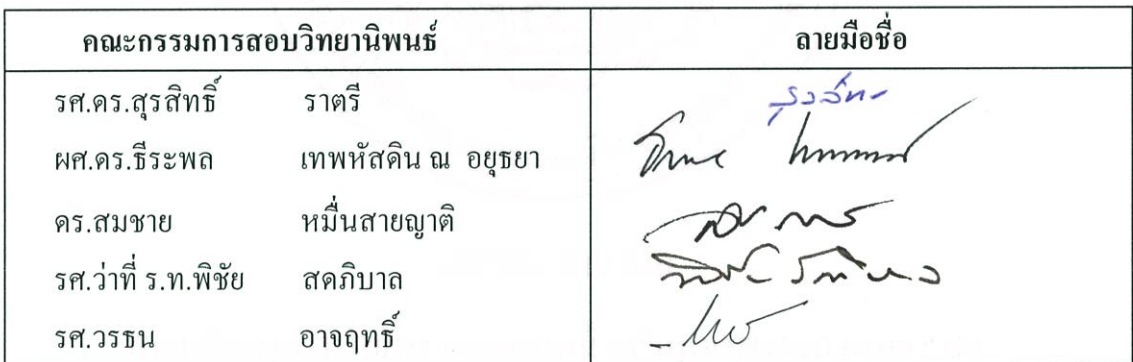 คณะกรรมการสอบวิทยานิพนธ์ ลายมือชื่อ
รศ.ดร.สุรสิทธิ์ ราตรี
ผศ.ดร.ธีระพล เทพหัสดิน ณ อยุธยา
ดร.สมชาย หมื่นสายญาติ
รศ.ว่าที่ ร.ท.พิชัย สดภิบาล
รศ.วรธน อาจฤทธิ์